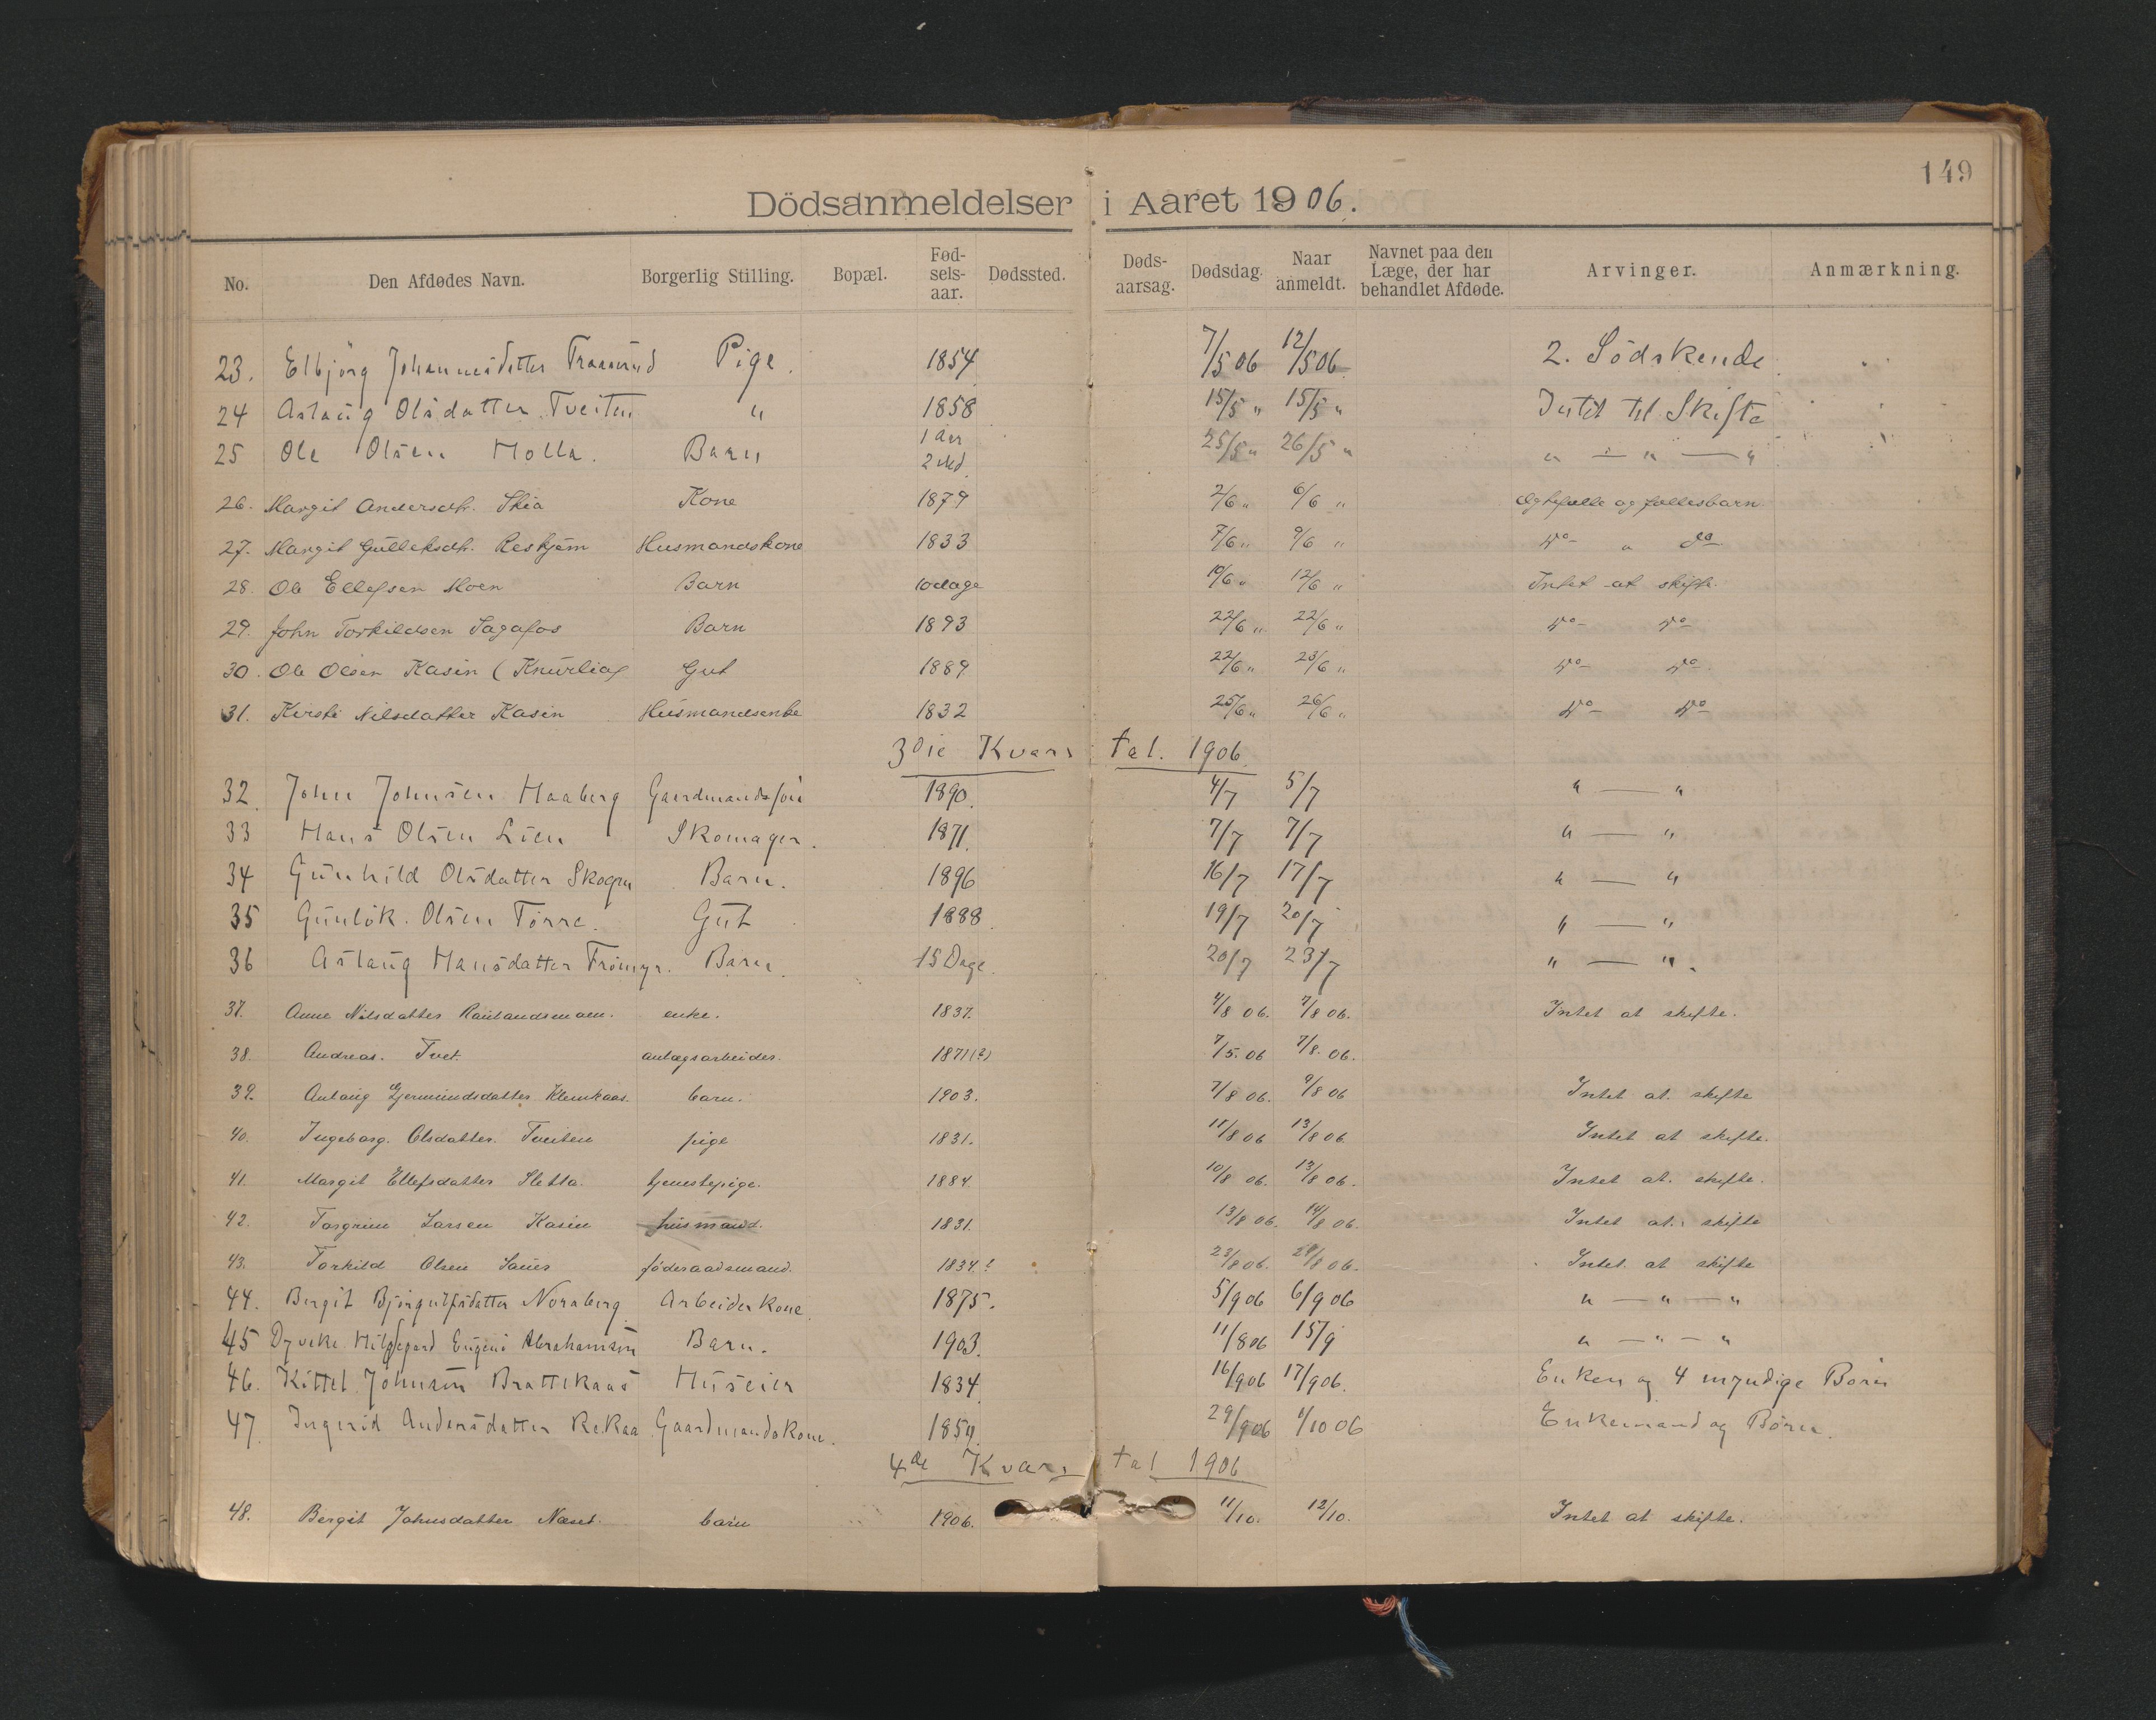 149
Dödsanmeldelser i Aaret 1906.
No. Den Afdødes Navn. Borgerlig Stilling. Bopæl. Fødselsaar. Dødssted. Dødsaarsag. Dødsdag. Naar anmeldt. Navnet paa den Læge, der har behandlet Afdøde. Arvinger. Anmærkning.
23. Elbjörg Johannesdatter Traaerud Pige. 1854 7/5 06 12/5 06. 2. Södskende
24 Aslaug Olsdatter Tveiten " 1858 15/5 " 15/5 " Intet til Skifte
25 Ole Olsen Molla. Barn 1 Aar 2 Md. 25/5 " 26/5 " " — " — "
26. Margit Andersdtr. Skia Kone 1879 2/6 " 6/6 " Ægtefælle og fællesbarn
27. Margit Gulleksdtr. Reskjem Husmandskone 1833 7/6 " 9/6 " Do " do
28. Ole Ellefsen Moen Barn 10 dage 10/6 " 12/6 " Intet at skifte.
29. John Torkildsen Sagafos Barn 1893 22/6 " 22/6 " Do Do
30. Ole Olsen Kasin (Knurlia) Gut 1889 22/6 " 23/6 " Do Do
31. Kirsti Nilsdatter Kasin Husmandsenke 1832 25/6 " 26/6 " Do Do
3die Kvartal. 1906.
32. John Johnsen Haaberg Gaardmandssön 1890. 4/7 5/7 " — "
33 Hans Olsen Lien Skomager. 1871. 7/7 7/7 " — "
34 Gunhild Olsdatter Skogen Barn. 1896 16/7 17/7 " — "
35 Gunlök. Olsen Törre. Gut 1888. 19/7 20/7 " — "
36 Aslaug Hansdatter Frömyr. Barn. 15 Dage. 20/7 23/7 " — ".
37. Anne Nilsdatter Raulandsmoen. enke. 1837. 4/8 06. 7/8 06. Intet at skifte.
38. Andreas. Tvet. anlægsarbeider. 1871(?) 7/5. 06 7/8. 06.
39. Aslaug Gjermundsdatter Klemkaas. barn. 1903. 7/8 06. 9/8 06 Intet at. skifte
40. Ingeborg. Olsdatter. Tveiten pige 1831. 11/8 06 13/8 06 Intet at skifte.
41. Margit Ellefsdatter Sletta. tjenestepige. 1884. 10/8 06. 13/8 06. Intet at. skifte.
42. Torgrim Larsen Kasin husmand. 1831. 13/8 06. 14/8 06. Intet at. skifte
43. Torkild Olsen Sauer föderaadsmand. 1834.? 23/8 06. 24/8 06. Intet. at skifte
44. Bergit Björgulfsdatter Noraberg Arbeiderkone 1875. 5/9 06 6/9 06 " — " — "
45 Dyveke Hildegard Eugeni Abrahamsen Barn. 1903. 11/8 06 15/9 " — " — "
46. Kittel Johnsen Brattekaas Huseier 1834. 16/9 06 17/9 06. Enken og 4 myndige Börn
47. Ingerid Andersdatter Rekaa Gaardmandskone. 1854. 29/9 06 1/10 06 Enkemand og Börn.
4de Kvartal 1906
48. Bergit Johnsdatter Næset. barn 1906. 11/10. 12/10. Intet at skifte.